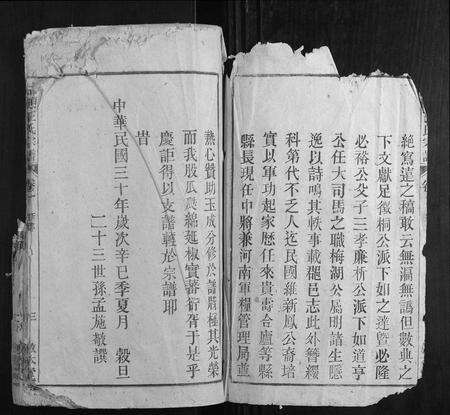 絶寫遠之稿敢云無漏無譌但數典之
下文獻足徵桐公派下如之蓬暨必隆
必裕公父子三孝廉析公派下如道亨
公任大司馬之職梅湖公屬明諸生隱
逸以詩鳴其軼事載邑志此外簪纓
科第代不乏人迄民國維新鳳公裔培
實以軍功起家歷任來賓壽合廬等縣
縣長現任中將兼河南軍糧管理局
熱心贊助玉成分修於譜牒極其光榮
而我股瓜瓞綿延椒實蕃衍胥于是乎
慶詎得以支譜轉於宗譜耶
旹
中華民國三十年歲次辛巳季夏月 穀旦
二十三世孫孟施敬譔